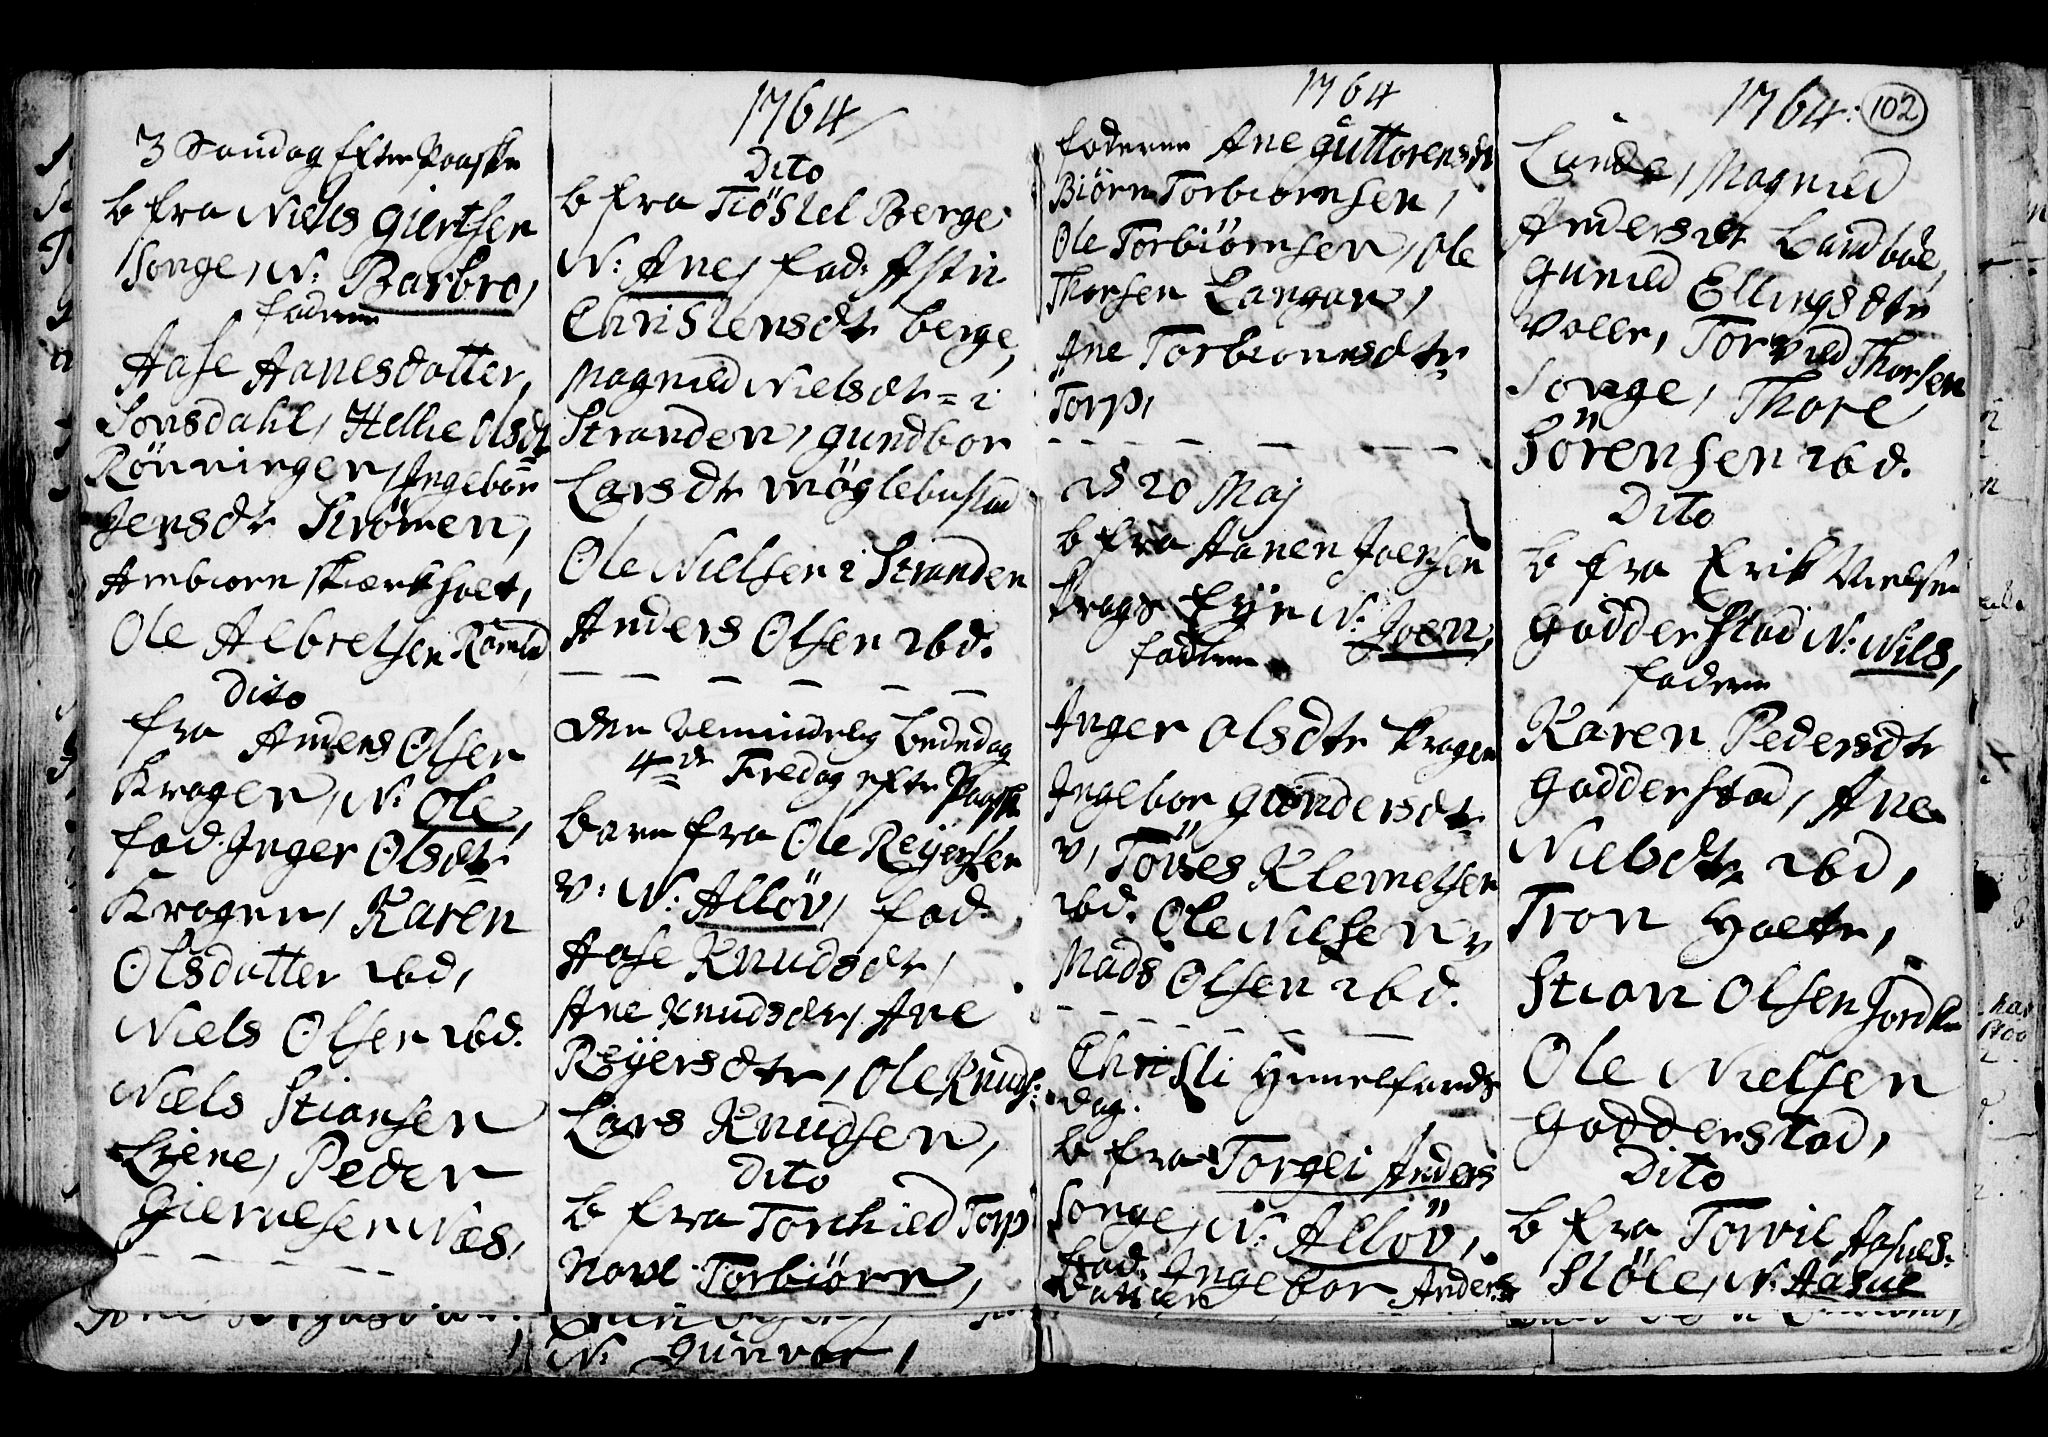 3 Søndag Efter Paaske
b fra Niels Giertsen
Songe, N: Barbro,
faderne
Aase Aanesdatter,
Sonsdahl, Hellie Olsdt
Rönningen, Ingebor
Jensdr Strömen,
Anbiorn Skierkholt,
Ole Albretsen
Dito
fra Anders Olsen
Kragen, N: Ole,
fad. Inger Olsdtr
Kragen, Karen
Olsdatter ibd,
Niels Olsen ibd.
Niels Stiansen
Liene, Peder
Gierulsen Næs,
1764
Dito
b fra Tiöstel Berge
N: Ane, fad: Astri
Christensdtr berge,
Magnild Nielsdt = i
Stranden, gundbor
Larsdtr möglebustad
Ole Nielsen i Stranden
Anders Olsen ibd.
Den Almindelig Bededag
4de Fredag efter Paaske
barn fra Ole Reÿersen
v: N: Allöv, fad.
Aase Knudsdr,
Ane Knudsdr, Ane
Reÿersdtr, Ole Knuds:
Lars Knudsen,
Dito
b fra Torchield Torp
Navl. Torbiörn,
1764
faderne Ane guttorensdt
Biörn Torbiornsen,
Ole Torbiörnsen, Ole
Thorsen Langan,
Ane Torbiornsdtr
Torp,
d 20 Maj
b fra Aanen Joensen
Kragr Eÿe N: Joen,
faderne
Inger Olsdtr Kragen
Ingebor gundersdtr
v, Töües Klemetsen
ibd. Ole Nilsen v
Mads Olsen ibd.
Christi Himelfards
dag.
b fra Torgei Anders
Songe, N: Allöv,
fad: Ingebor Anders
datter
1764: 102
Lunde, Magnild
Andersdt Landböe,
Gunild Ellingsdtr
Volle, Torvild Thorsen
Songe, Thore
Sörensen ibd.
Dito
b fra Erik Nielsen
Godderstad N: Nils,
faderne
Karen Pedersdtr
Godderstad, Ane
Nielsdtr ibd,
Tron Holte,
Stian Olsen
Ole Nielsen
Godderstad,
Dito
b fra Torvil Aasules.
Stöle, N: Aasul
N: Gunvor,